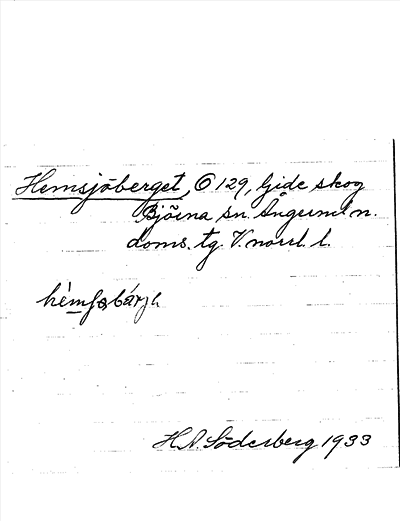 Hemsjöberget, Ö 129, Gide skog
Björna sn. Ångerml n.
doms. tg. V. norrl. l.
hèmſəbárjə
H.A. Söderberg 1933